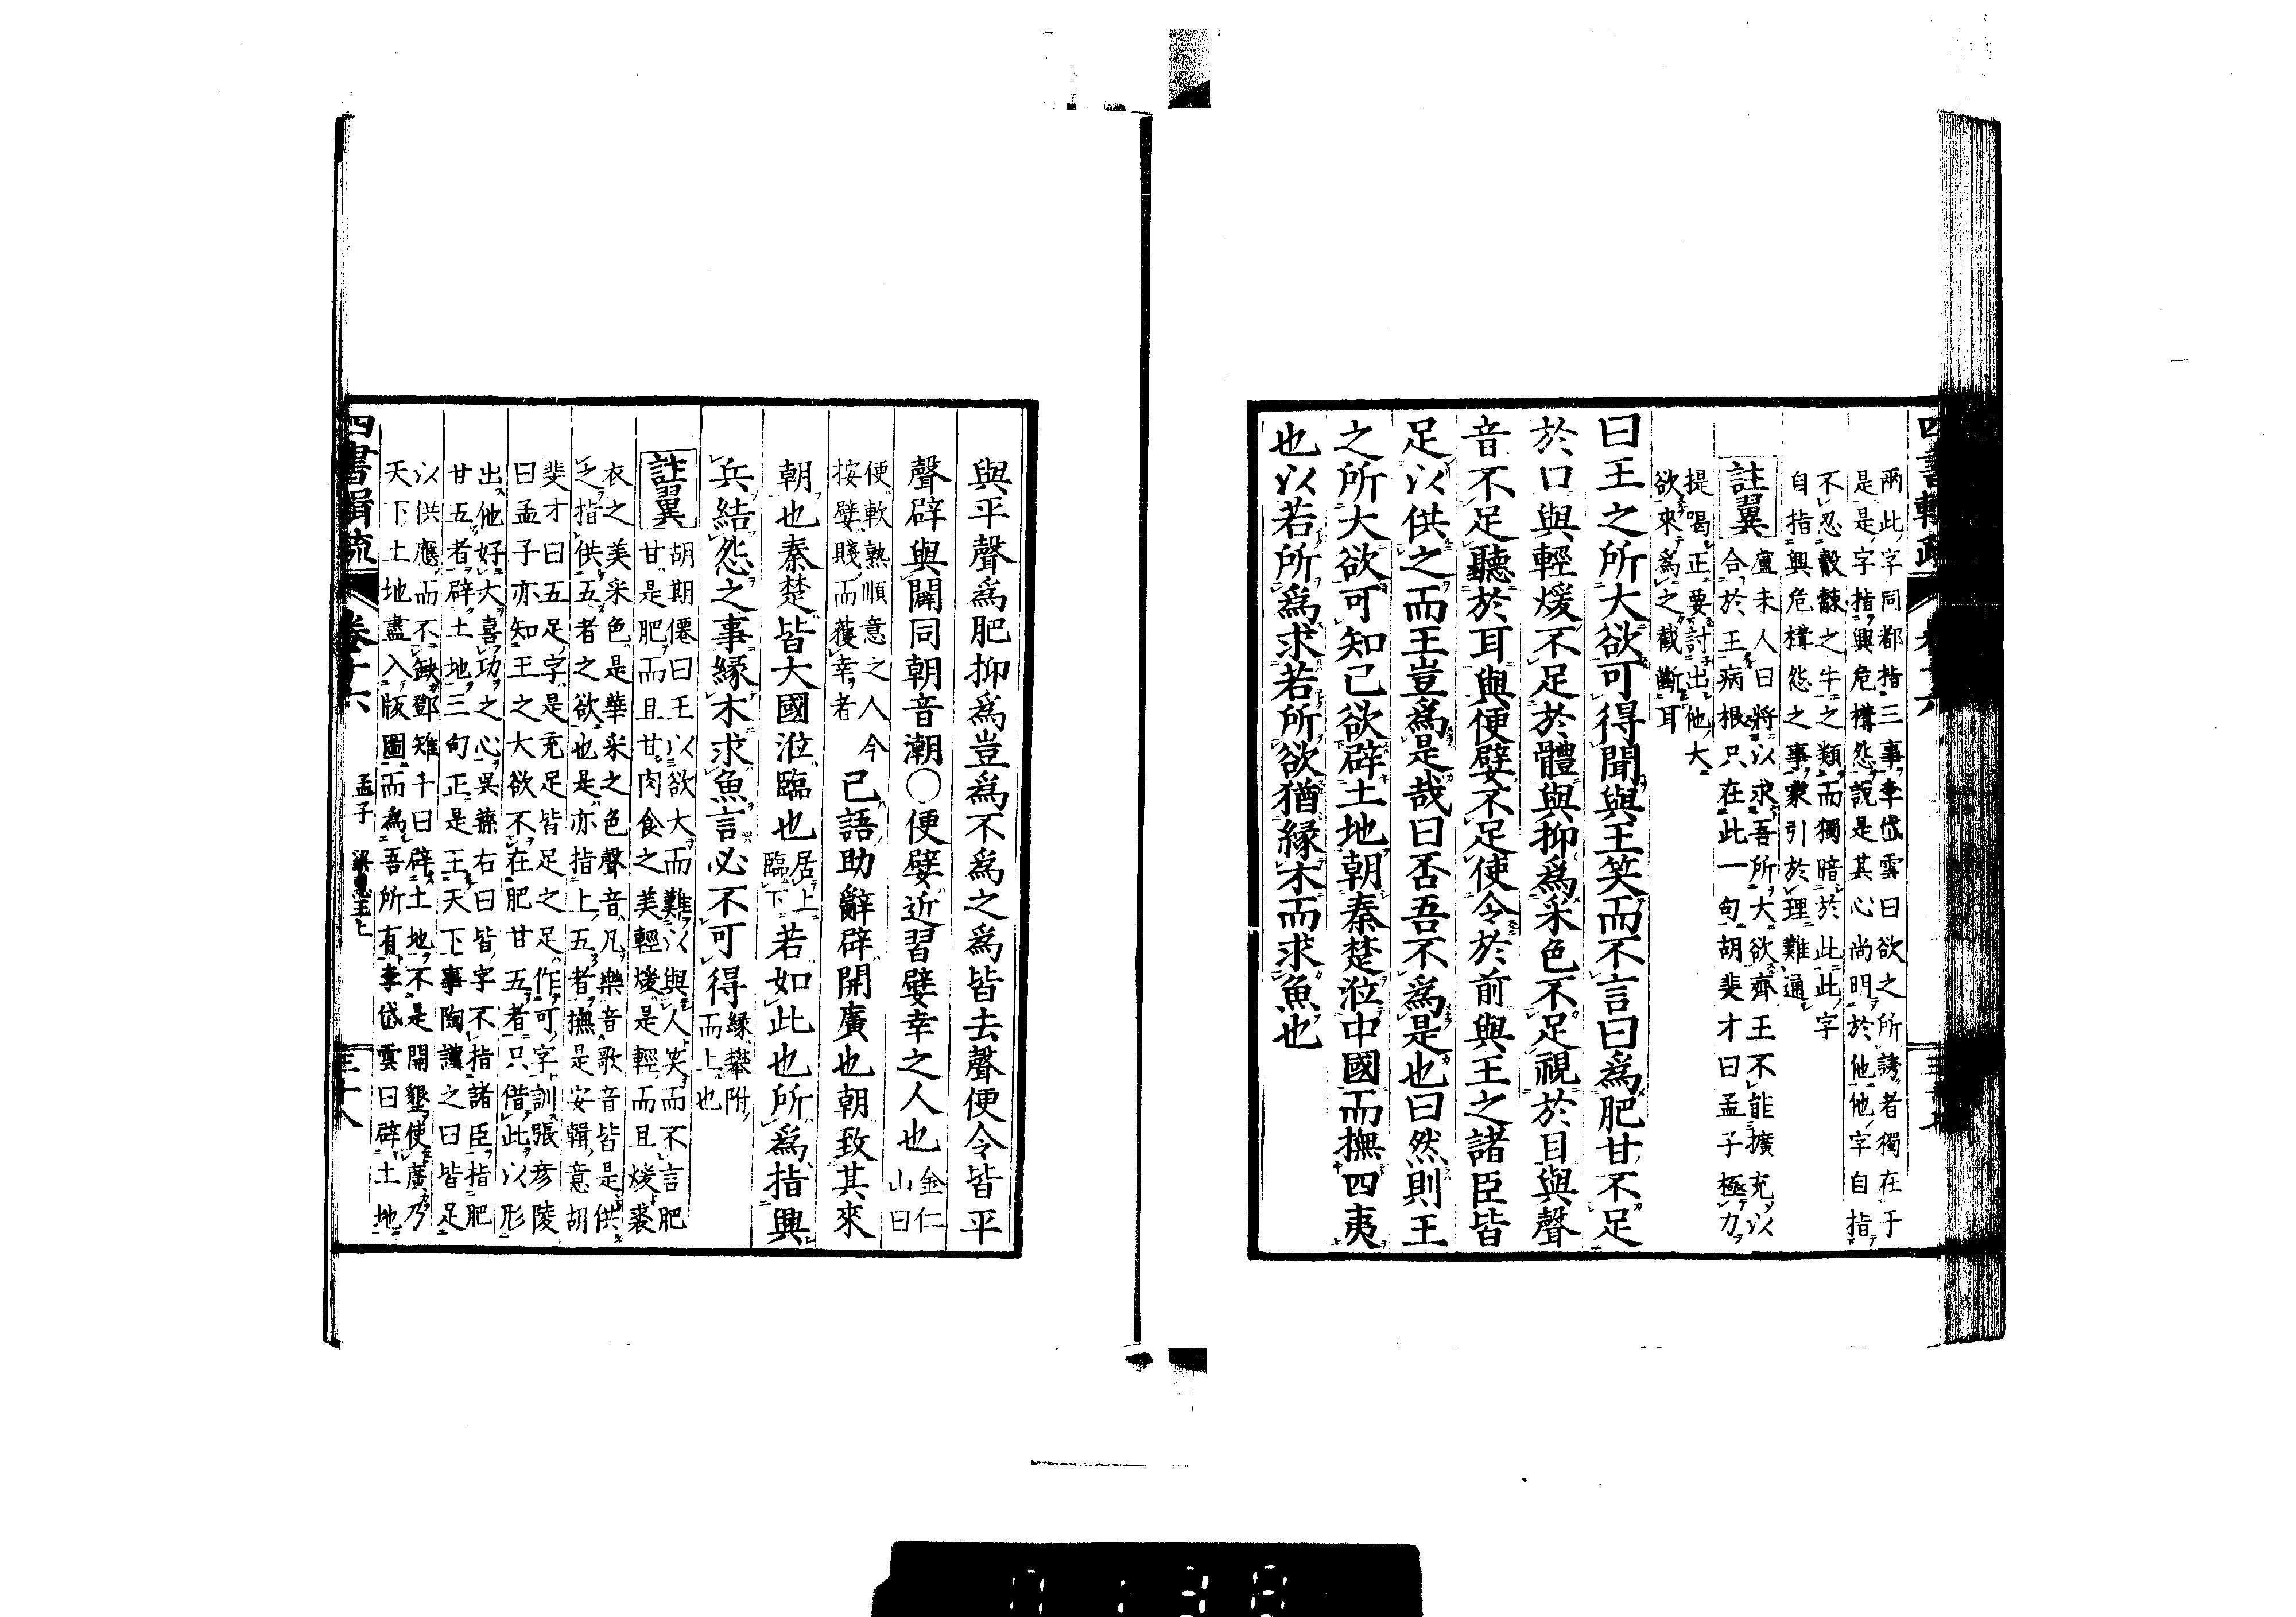 四書輯疏
卷十六
兩此字同都指三事李岱雲曰欲之所誘者獨在于
是是字指興危構怨說是其心尚明於他他字自指
不忍觳觫之牛之類而獨暗於此此字
自指興危構怨之事蒙引於理難通
註翼
盧未人曰將以求吾所大欲齊王不能擴充以
合於王病根只在此一句胡斐才曰孟子極力
提喝正要討出他大
欲來為之截斷耳
曰王之所大欲可得聞與王笑而不言曰為肥甘不足
於口與輕煖不足於體與抑為采色不足視於目與聲
音不足聽於耳與便嬖不足使令於前與王之諸臣皆
足以供之而王豈為是哉曰否吾不為是也曰然則王
之所大欲可知已欲辟土地朝秦楚涖中國而撫四夷
也以若所為求若所欲猶緣木而求魚也
與平聲為肥抑為豈為不為之為皆去聲便令皆平
聲辟與闢同朝音潮○便嬖近習嬖幸之人也
金仁
山曰
便軟熟順意之人今
按嬖賤而獲幸者
已語助辭辟開廣也朝致其來
朝也秦楚皆大國涖臨也
居上
臨下
若如此也所為指興
兵結怨之事緣木求魚言必不可得
緣攀附
而上也
註翼
胡期僊曰王以欲大而難以與人笑而不言肥
甘是肥而且甘肉食之美輕煖是輕而且煖裘
衣之美采色是華采之色聲音凡樂音歌音皆是供
之指供五者之欲也是亦指上五者撫是安輯意胡
斐才曰五足字是充足皆足之足作可字訓張彥陵
曰孟子亦知王之大欲不在肥甘五者只借此以形
出他好大喜功之心吳蓀右曰皆字不指諸臣指肥
甘五者辟土地三句正是王天下事陶讜之曰皆足
以供應而不缺鄧雉千曰辟土地不是開墾使廣乃
天下土地盡入版圖而為吾所有李岱雲曰辟土地
四書輯疏
卷十六
孟子
梁惠王上
三十八